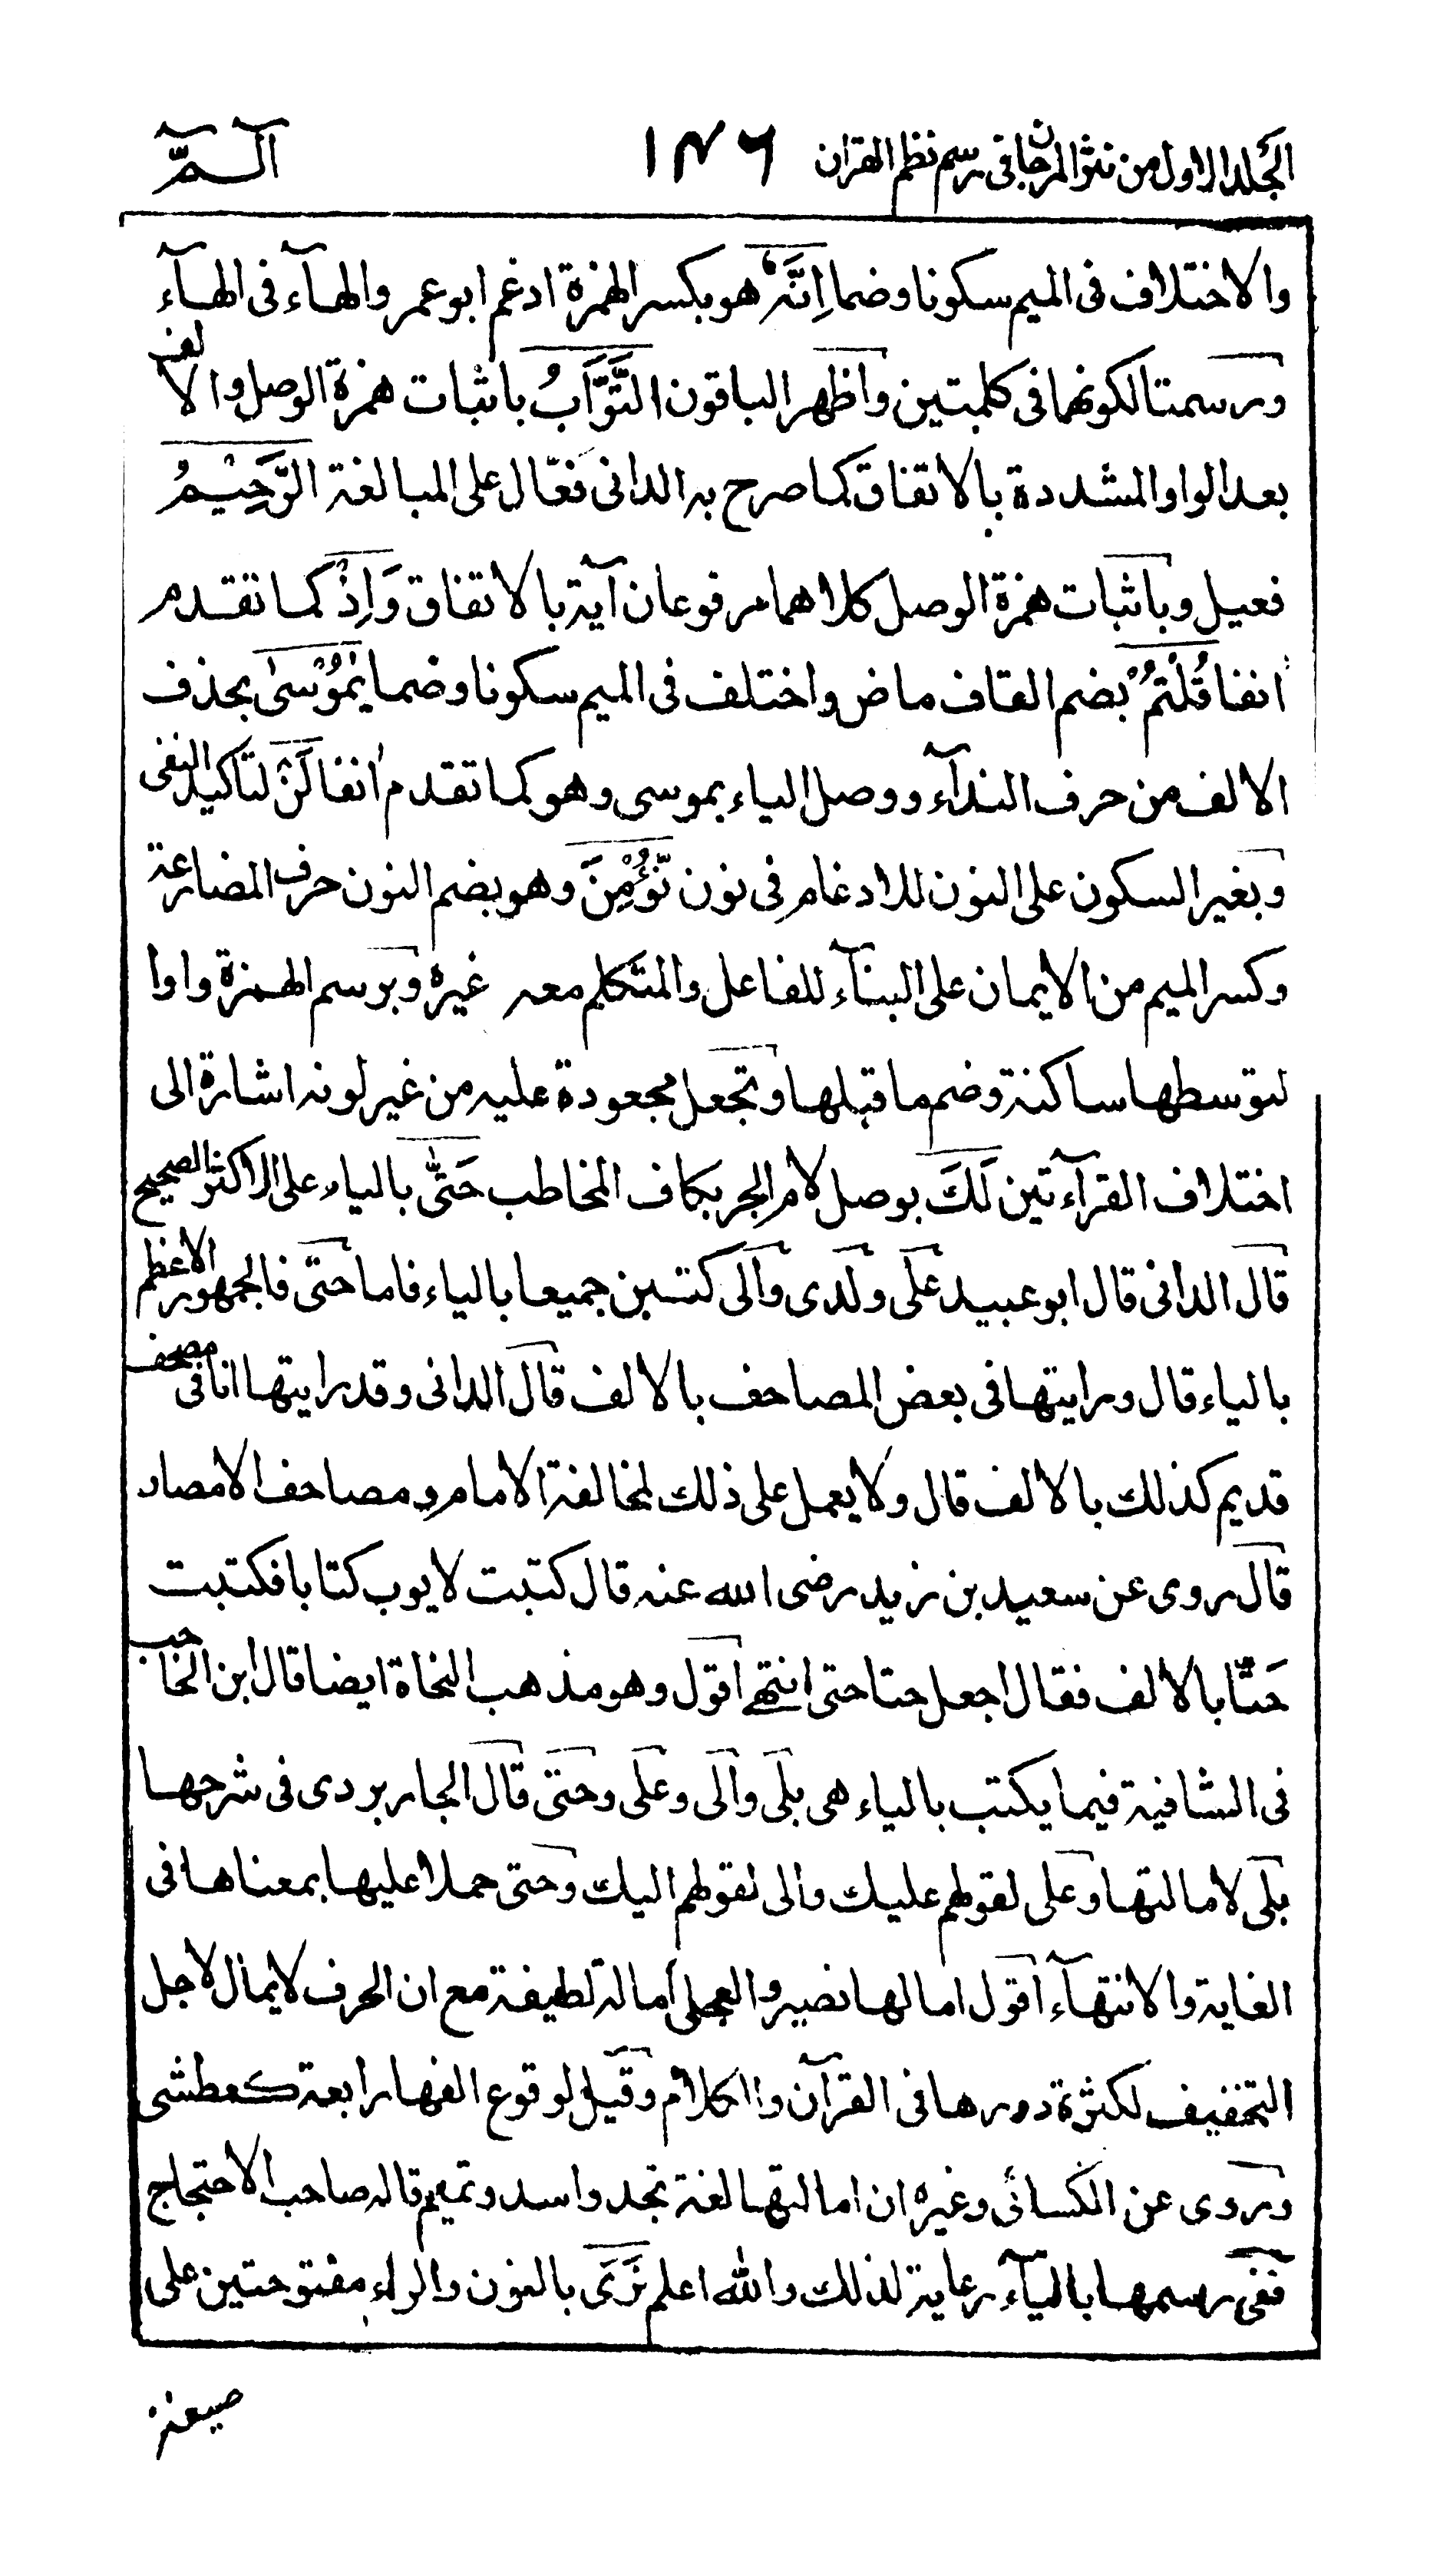 الجلد الاول من نثر المرجان فی رسم نظم القران ١٤٦ الٓـمّٓ
والاختلاف فی المیم سکونا وضما اِنَّہٗ ھو بکسر الهمزة ادغم ابو عمر والھآء فی الھآء
ورسمتا لکونهما فی کلمتین واظهر الباقون التَّوَّابُ باثبات همزة الوصل والالف
بعد الواو المشددة بالاتفاق کما صرح به الدانی فعّال علی المبالغة الرَّحِیْمُ
فعیل وباثبات همزة الوصل کلاهما مرفوعان آیة بالاتفاق وَاِذْ کما تقدم
انفا قُلْتُمْ بضم القاف ماض واختلف فی المیم سکونا وضما یٰمُوْسٰی بحذف
الالف من حرف الندآء ووصل الیاء بموسی وهو کما تقدم اٰنفا لَنْ لتاکید النفی
وبغیر السکون علی النون للادغام فی نون نُّؤْمِنَ وهو بضم النون حرف المضارعة
وکسر المیم من الایمان علی البنآء للفاعل والمتکلم معه غیره وبرسم الهمزة واوا
لتوسطها ساکنة وضم ما قبلها وتجعل مجعودة علیه من غیر لونه اشارة الی
اختلاف القرآءتین لَکَ بوصل لام الجر بکاف المخاطب حَتّٰی بالیاء علی الاکثر الصحیح
قال الدانی قال ابو عبید علی ولدی والی کتبن جمیعا بالیاء فاما حتی فالجمهور الاعظم
بالیاء قال ورایتها فی بعض المصاحف بالالف قال الدانی وقد رایتها انا فی مصحف
قدیم کذلك بالالف قال ولا یعمل علی ذلك لمخالفة الامام ومصاحف الامصار
قال روی عن سعید بن زید رضی الله عنه قال کتبت لایوب کتابا فکتبت
حَتّا بالالف فقال اجعل حتا حتی انتهے اقول وهو مذهب النحاة ایضا قال ابن الحاجب
فی الشافیة فیما یکتب بالیاء هی بلی والی وعلی وحتی قال الجاربردی فی شرحها
بلی لامالتها وعلی لقولهم علیك والی لقولهم الیك وحتی حملا علیها بمعناها فی
الغایة والانتهآء اقول امالها نصیر والعجلی امالة لطیفة مع ان الحرف لا یمال لاجل
التخفیف لکثرة دورها فی القرآن والکلام وقیل لوقوع الفها رابعة کعطشی
وروی عن الکسائی وغیره ان امالتها لغة نجد واسد وتمیم قاله صاحب الاحتجاج
ففی رسمها بالیآء رعایة لذلك والله اعلم نَرَی بالنون والراء مفتوحتین علی
صیغة